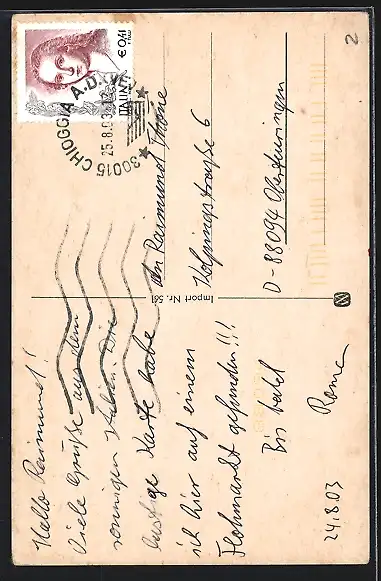 Hallo Raimund!
Viele Grüße aus dem
sonnigen Italien. Die
lustige Karte habe
ich hier auf einem
Flohmarkt gefunden!!!
Bis bald
Roma
24.8.03
Import Nr. 561
ITALIA
€ 0,41
30015 CHIOGGIA A.D.
25.8.03
An Raimund Thome
Kolpingstraße 6
D-88094 Oberteuringen
2